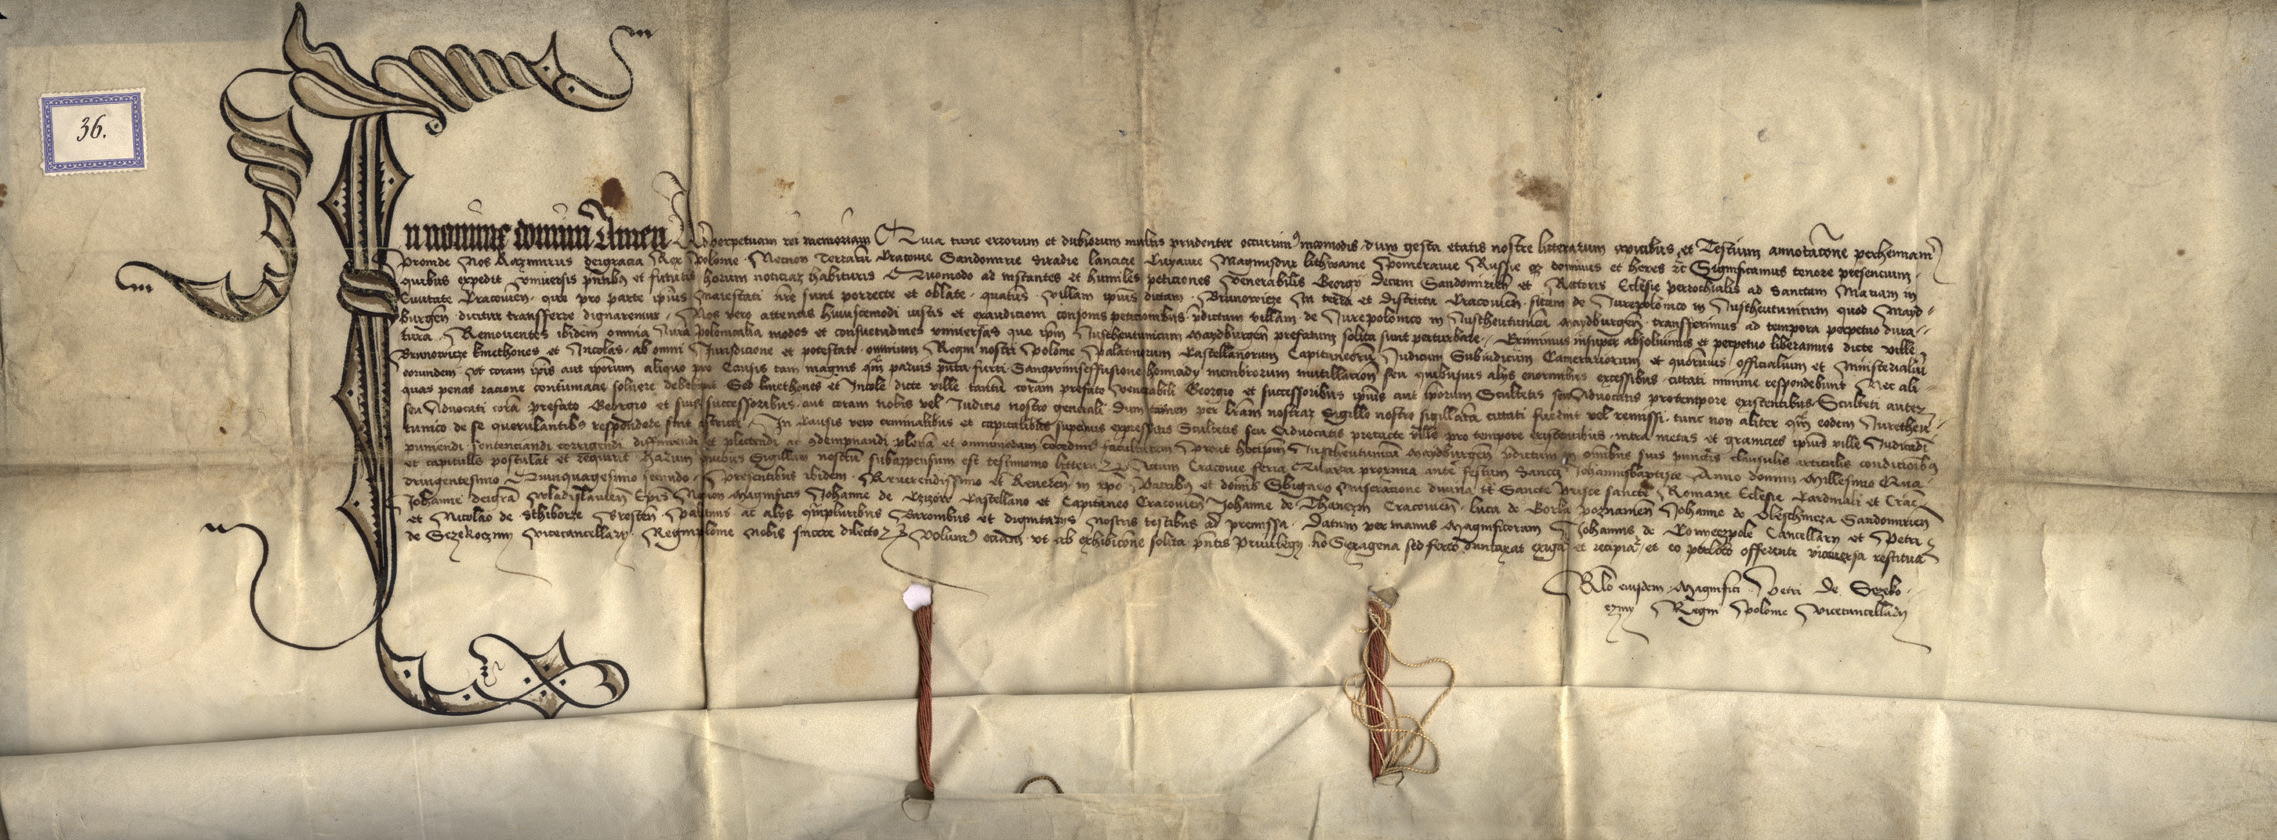 36.
In nomine domini Amen Ad perpetuam rei memoriam Quia tunc errorum et dubiorum multis prudenter occurrim9 incomodis dum gesta etatis nostre litterarum apicibus et Testium annotacõne perhennam9
Proinde Nos Kazimirus dei gracia Rex Polonie Necnon Terrarũ Cracouie Sandomirie Siradie lancicie Cuyauie Magnusdux lithwanie Pomeranie Russie qz dominus et heres zc Significamus tenore presencium
quibus expedit vniuersis pñtibus et futuris horum noticiaz habituris Quomodo ad instantes et humiles peticiones Venerabilis Georgij Decani Sandomirieñ et Rectoris Eclesie parrochialis ad Sanctam Mariam in
Ciuitate Cracouieñ que pro parte ipius Maiestati nre sunt porrecte et oblate quatinus villam ipius dictam Brunowicze In terra et districtu Cracouieñ sitam de Jurepolonico in Justheutunicum quod Mayd
burgeñ dicitur transferre dignaremur Nos vero attentis huiuscemodi iustis et exaudicioni consonis peticionibus pdictam villam de Jurepolonico in Justheutunicũ Maydburgeñ transferimus ad tempora perpetuo dura
tura Remouentes ibidem omnia Jura Polonicalia modos et consuetudines vniuersas que ipm Justheutunicum Maydburgeñ prefatum solita sunt perturbare Eximimus insuper absoluimus et perpetuo liberamus dicte ville
Brunowicze kmethones et Incolas ab omni Jurisdicione et potestate omnium Regni nostri Polonie Palatinorum Castellanorum Capitaneorũ Judicum Subiudicum Camerariorum et quorumuis officialium et Ministerialiũ
eorundem vt coram ipis aut ipsorum aliquo pro Causis tam magnis qm paruis puta furti Sanguinis effusione homicidij membrorum mutillacioñ seu quibusuis alijs enormibus excessibus citati minime respondebunt Nec ali
quas penas racione contumacie soluere debebunt Sed kmethones et Incole dicte ville tantũ coram prefato venerabili Georgio et successoribus ipius aut ipsorum Scultetis seu Aduocatis protempore existentibus Sculteti autez
seu Aduocati corã prefato Georgio et suis successoribus aut coram nobis vel Judicio nostro generali dum tamen per lram nostraz Sigillo nostro sigillatã citati fuerint vel remissi tunc non aliter qm eodem Juretheu
tunico de se querulantibus respondere sint astricti In Causis vero criminalibus et capitalibus superius expressis Scultetis seu Aduocatis pretacte ville pro tempore existentibus intra metas et granicies ipius ville Judicãdi
puniendi sentenciandi corrigendi diffiniendi et plectendi ac condempnandi plenã et omnimodam concedimus facultatem prout hocipm Justheutunicũ Maydburgeñ pdictum in omnibus suis punctis clausulis articulis condicionibus
et capitulis postulat et requirit Harum quibus Sigillum nostrũ subappensum est testimonio litteraruz Actum Cracouie feria Quarta proxima ante festum Sancti Johannisbaptiste Anno domini Millesimo Qua
dringentesimo Quinquagesimo secundo Presentibus ibidem Reuerendissimo et Reuereñ in xpo Patribus et dominis Sbigneo miseracione diuina tt Sancte Prisce sancte Romane Eclesie Cardinali et Crac
Johanne dei gra wladislauieñ Epis Necnon Magnificis Johanne de Czizow Castellano et Capitaneo Cracouieñ Johanne de Thanczin Cracouieñ luca de Gorka Poznanieñ Johanne de Oleschnicza Sandomirieñ
et Nicolao de Sthiborze Brzesteñ Palatinis ac alijs qmpluribus Baronibus et dignitarijs nostris testibus ad premissa Datum per manus Magnificorum Johannis de Conieczpole Cancellarij et Petri
de Sczekoczini vicecancellarij Regnipolonie nobis sincere dilectoruz Volum9 eciam vt ab exhibicione solita pñtis Priuilegij no Sexagena sed ferto duntaxat exigat9 et recipiat9 et eo pacto offerenti viceuersa restituat
Rlo eiusdem Magnifici Petri de Sczeko
cziny Regni Polonie vicecancellarij